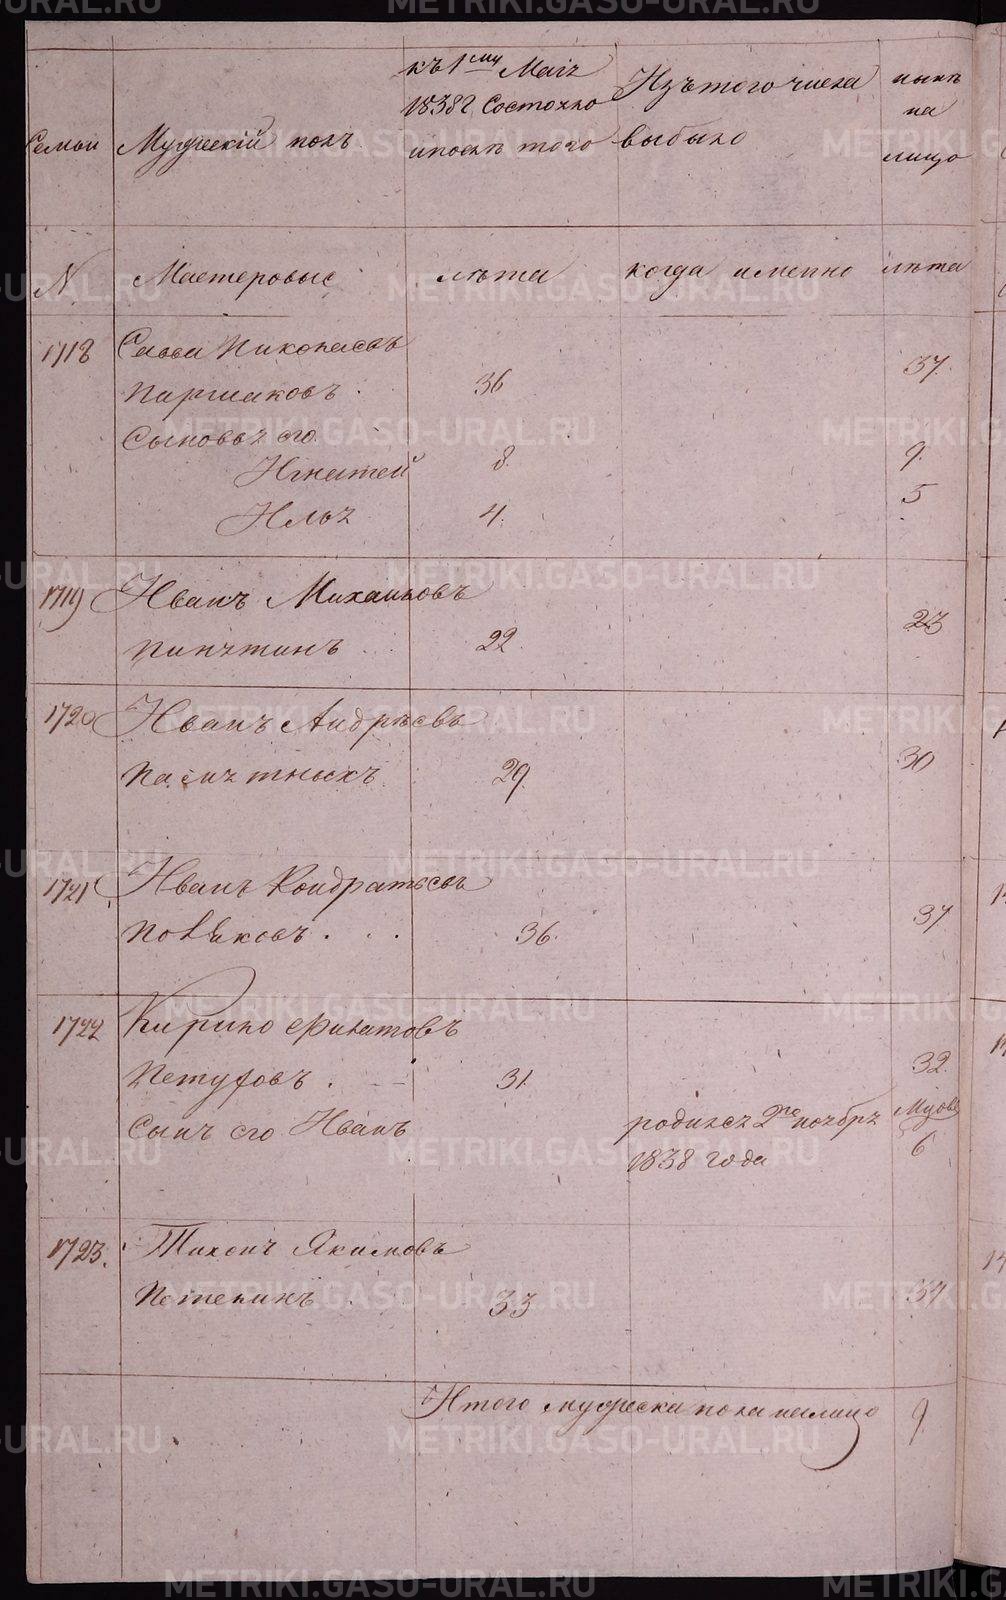 METRIKI.GASO-URAL.RU
Семьи
Мужескій полъ
къ 1му Маія
1838г Состояло
и послѣ того
Изъ того числа
выбыло
нынѣ
на
лицо
N
Мастеровые
лѣта
когда именно
лѣта
1718 Савва Николаевъ
Паршаковъ 36 37
Сыновья его
Игнатей 8 9
Илья 4 5
1719 Иванъ Михаиловъ
22 23
1720 Иванъ Андрѣевъ
29 30
1721 Иванъ Кондратьевъ
Поляковъ 36 37
1722 Кирило Филатовъ
Петуховъ 31 32
Сынъ его Иванъ родился 2го ноября 6
1838 года
1723 Тихонъ Якимовъ
33 34
Итого мужеска пола налицо 9